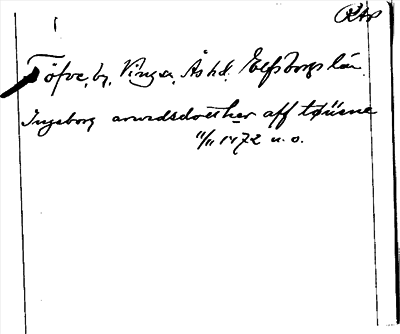 Töfve, by, Vinga, Åshd. Elfsborgs län.
Ingeborg arwedsdotther aff tøüsne
11/11 1472 u. o.